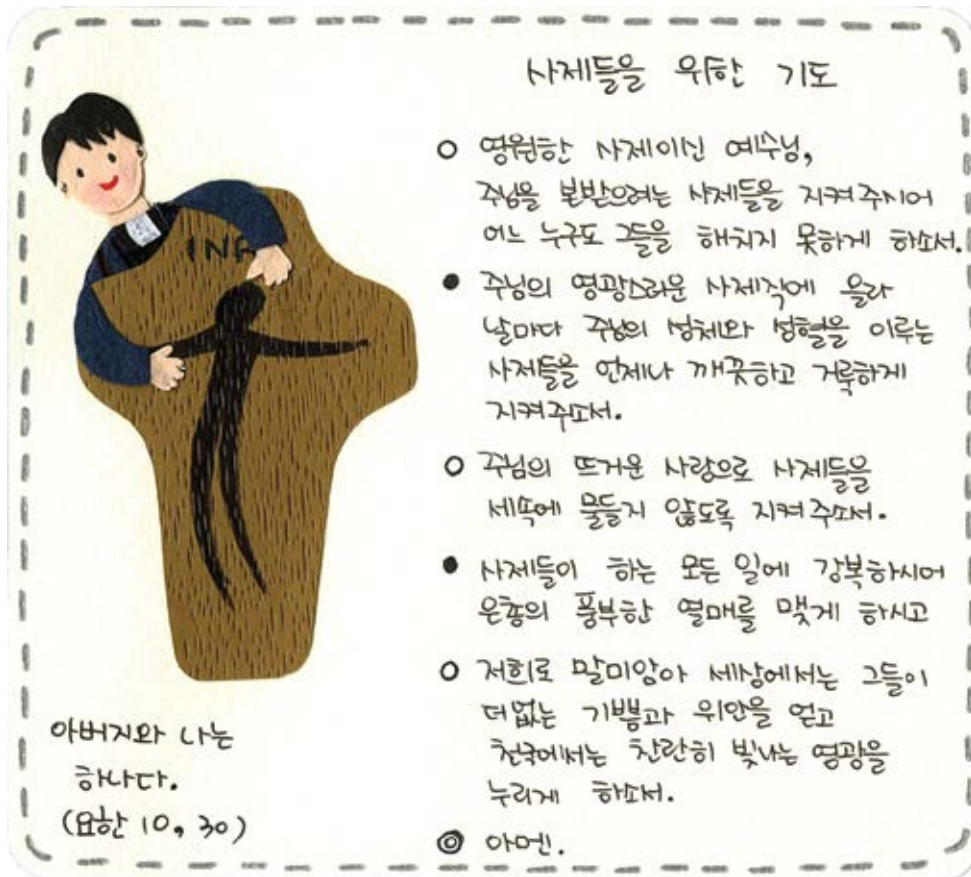 사제들을 위한 기도
○ 영원한 사제이신 예수님,
주님을 본받으려는 사제들을 지켜주시어
어느 누구도 그들을 해치지 못하게 하소서.
● 주님의 영광스러운 사제직에 올라
날마다 주님의 성체와 성혈을 이루는
사제들을 언제나 깨끗하고 거룩하게
지켜주소서.
○ 주님의 뜨거운 사랑으로 사제들을
세속에 물들지 않도록 지켜주소서.
● 사제들이 하는 모든 일에 강복하시어
은총의 풍부한 열매를 맺게 하시고
○ 저희로 말미암아 세상에서는 그들이
더없는 기쁨과 위안을 얻고
천국에서는 찬란히 빛나는 영광을
누리게 하소서.
◎ 아멘.
INR
아버지와 나는
하나다.
(요한 10, 30)